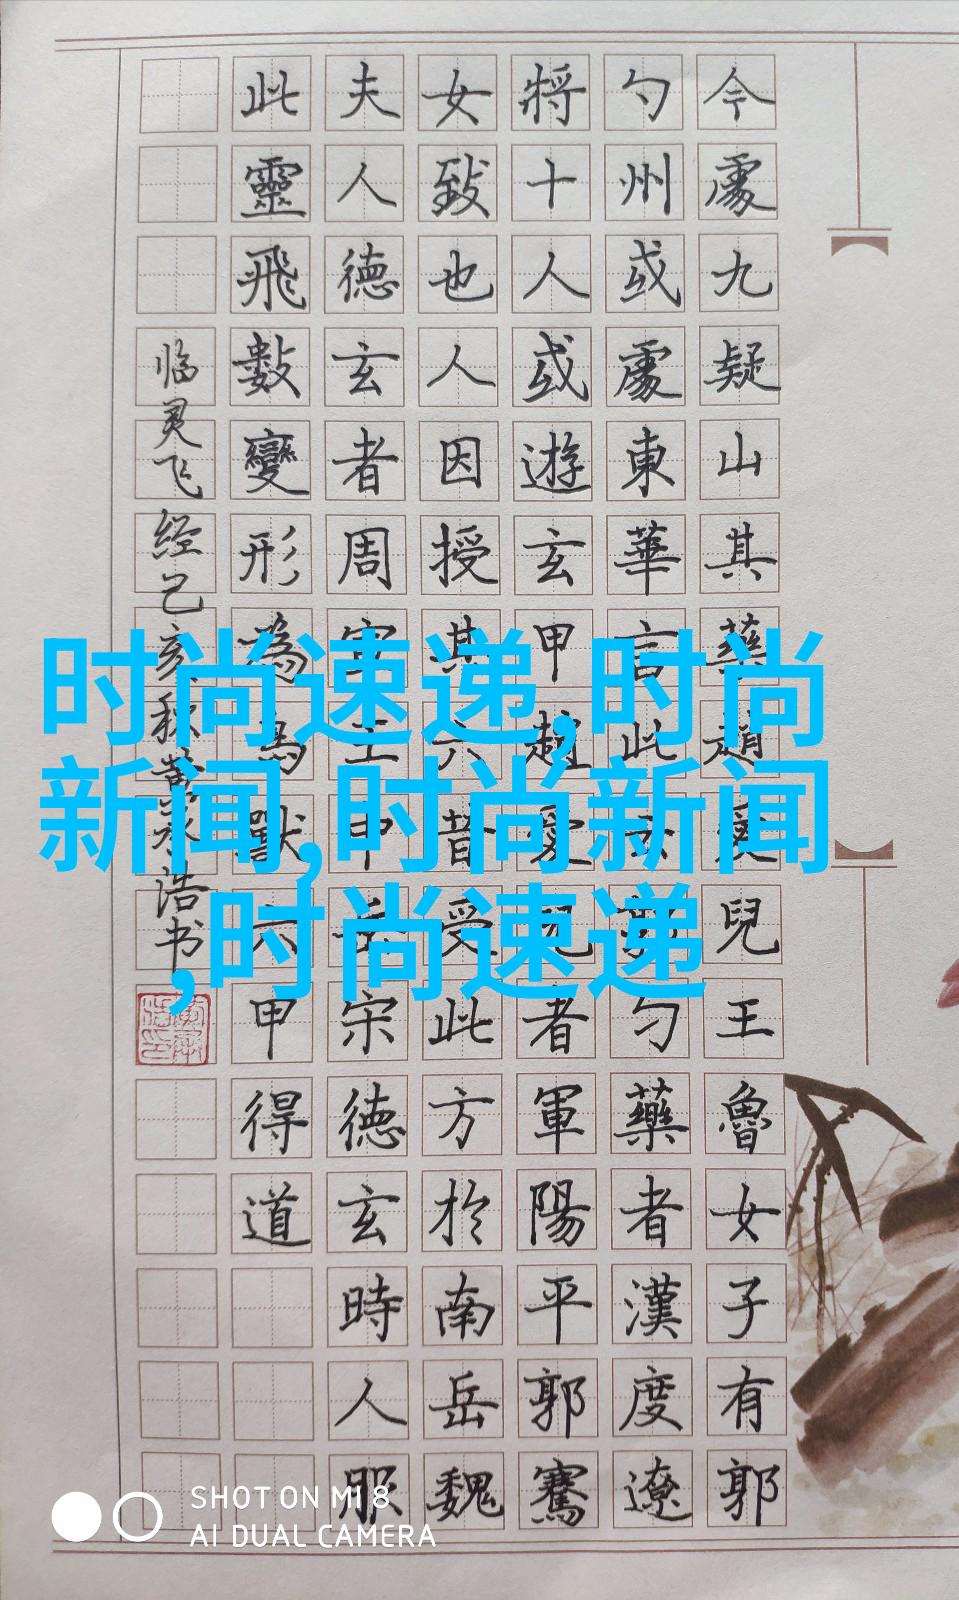 今處九疑山其藥趙愛兒王魯女子有郭
勺州或處東華言此勺藥者漢度遼
將十人或遊玄甲趙愛兒者軍陽平郭騫
女致也人因授其六昔受此方於南岳魏
夫人德玄者周甲宋德玄時人服
此靈飛數變形為鳥獸六甲得道
临灵飞经己亥秋浩书
时尚速递,时尚
新闻,时尚新闻
,时尚速递
SHOT ON MI 8
AI DUAL CAMERA